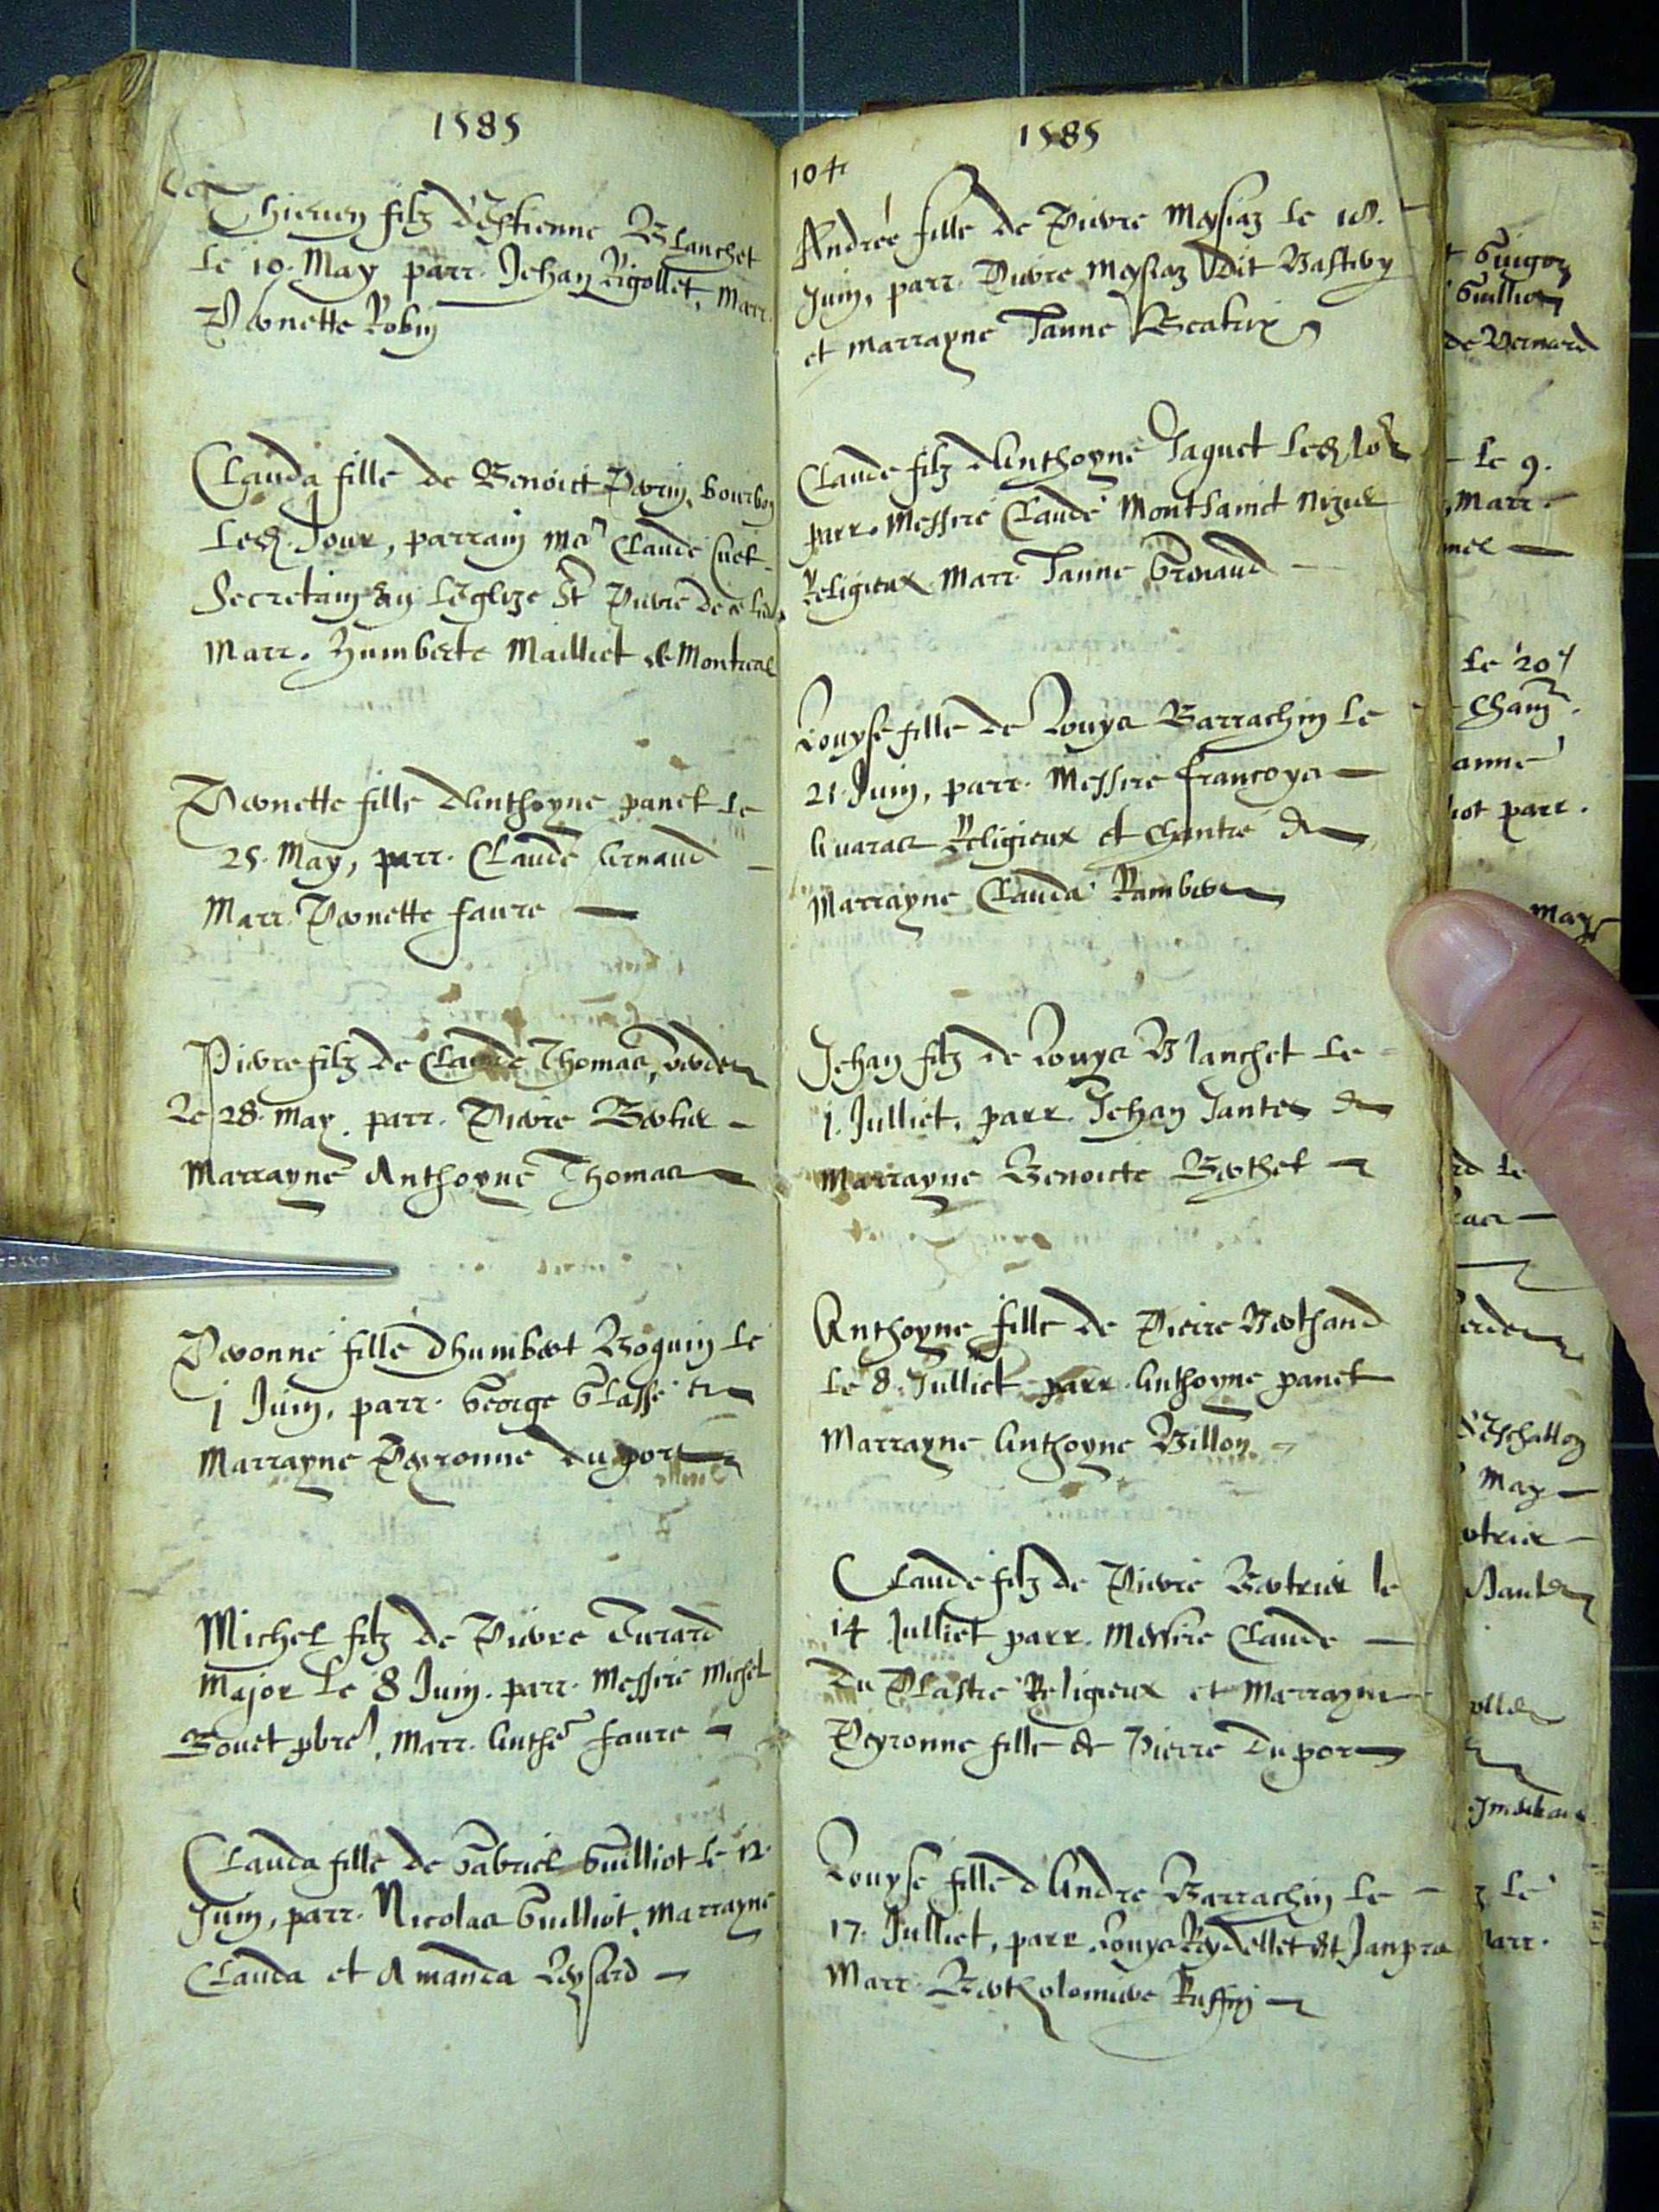 1585
Thieven filz d'Estienne Blanchet
Le 10. May parr. Jehan Rigollet, Marr.
Pernette Robin
Clauda fille de Benoict Perin, bourbon
Led. Jour, parrain Mre Claude Cuet
Secretain en Leglize St Pierre de ce lieu
Marr. Humberte Mailliet de Montreal
Pernette fille d'Anthoyne panet Le
25. May, parr. Claude Arnaud
Marr. Pernette faure
Pierre filz de Claude Thomas,
Le 28. May. parr. Pierre
Marrayne Anthoyne Thomas
Peronne fille d'humbert Boguin Le
1 Juin, parr. George Glasse et
Marrayne Peyronne du port
Michel filz de Pierre Girard
Major Le 8 Juin. parr. Messire Michel
Bouet pbre, Marr. Anthe faure
Clauda fille de Gabriel Guilliot Le 12.
Juin, parr. Nicolas Guilliot, Marrayne
Clauda et Amanda
1585
104
Andrée fille de Pierre Meysiaz Le 18.
Juin, parr. Pierre Meysiaz dit
et Marrayne Janne Beatrix
Claude filz d'Anthoyne Jaquet Led. Jor
parr. Messire Claude Montsainct
Religieux. Marr. Janne Grenaud
Louyse fille de Louys Barrachin Le
21. Juin, parr. Messire francoys
Religieux et Chantre et
Marrayne Clauda Rambert
Jehan filz de Louys Blanchet Le
1. Julliet, parr. Jehan Jantet et
Marrayne Benoicte Berthet
Anthoyne fille de Pierre Berthand
Le 8. Julliet parr. Anthoyne panet
Marrayne Anthoyne Billon
Claude filz de Pierre Bertrier le
14 Julliet parr. Messire Claude
Du Plastre Religieux et Marrayne
Peyronne fille de Pierre Du port
Louyse fille d'Andre Barrachin Le
17. Julliet, parr. Louys Reydellet
Marr. Bertholomieve Ruffin
Guigon
Guillion
de Bernard
Le 9.
Marr.
Le 20
anne
parr.
May
d'Eschallon
May
Le